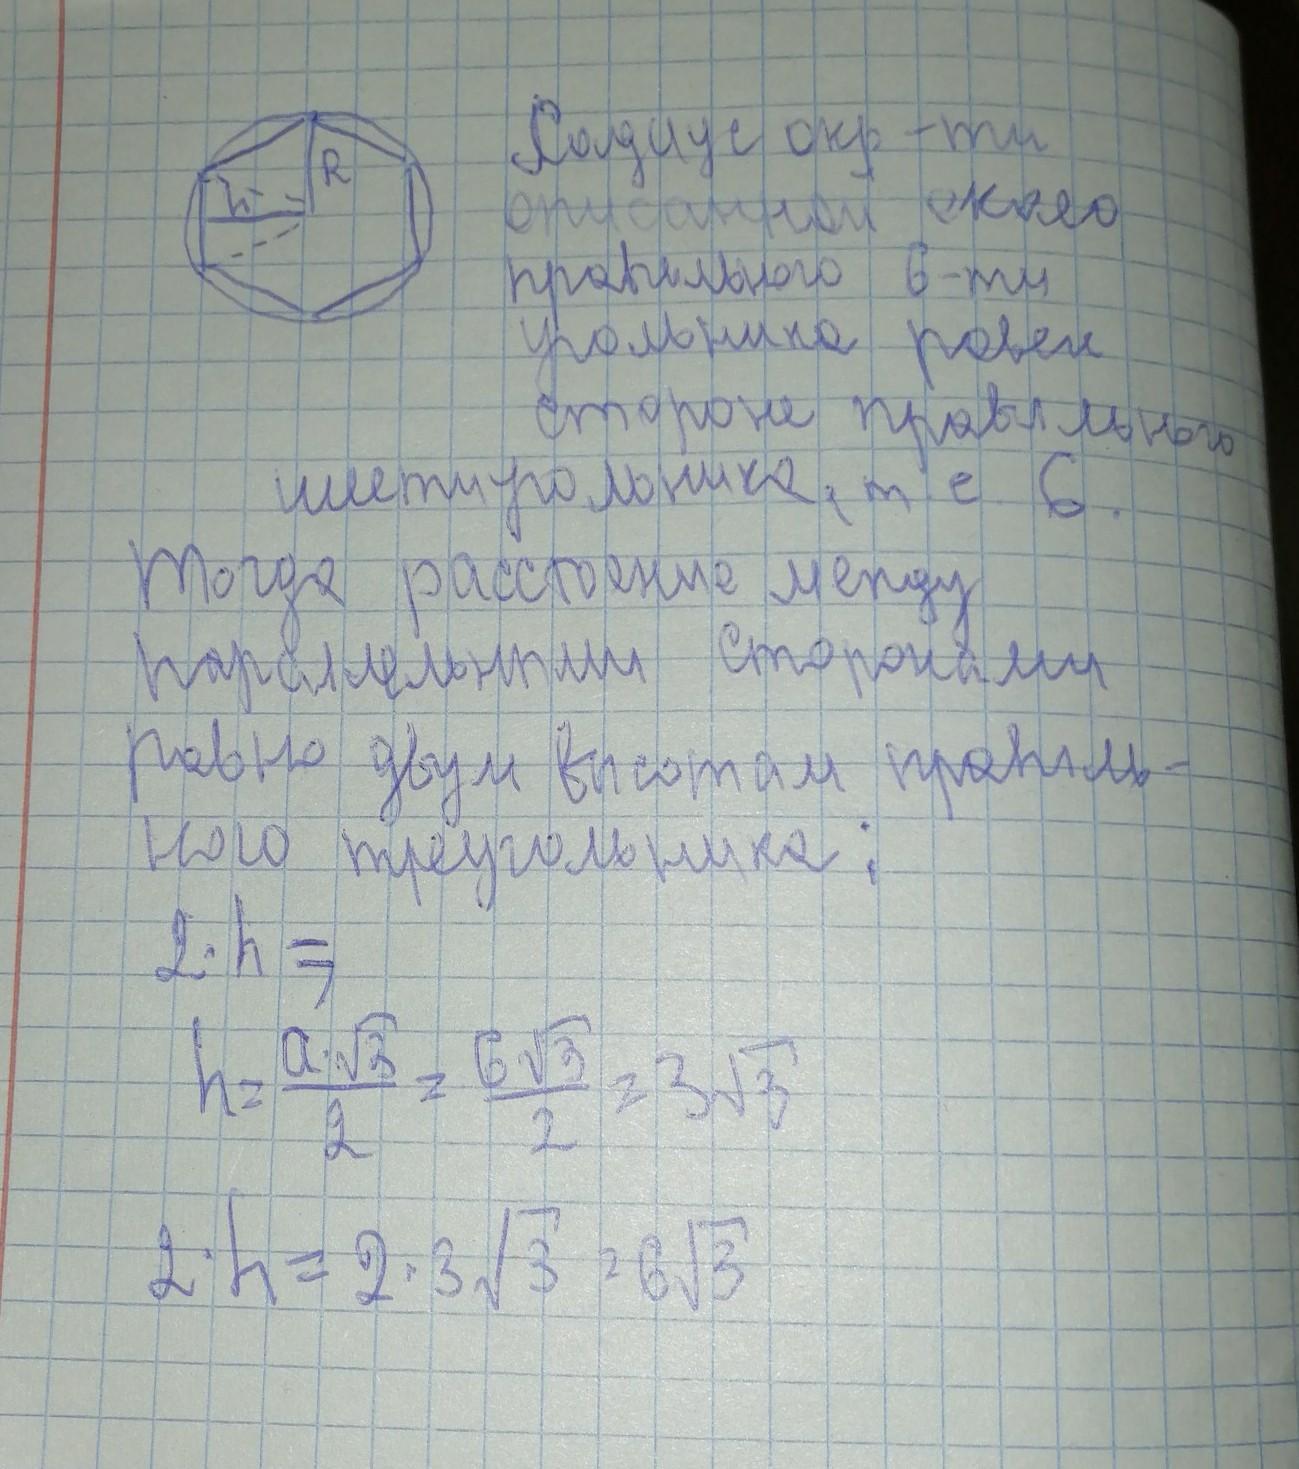 R
h
Радиус окр-ти
описанной около
правильного 6-ти
угольника равен
стороне правильного
шестиугольника, т е 6.
Тогда расстоение между
параллельными сторонами
равно двум высотам правиль-
ного треугольника:
2·h =
h = a·√3/2 = 6√3/2 = 3√3
2·h = 2·3√3 = 6√3